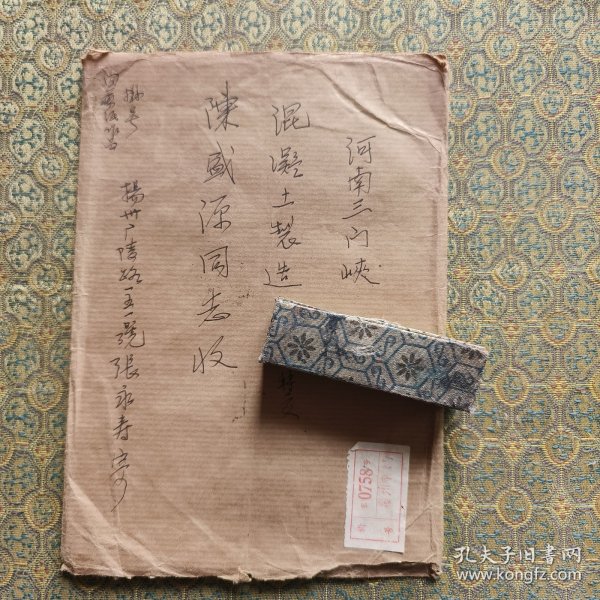 河南三门峡
混凝土製造
陳盛源同志收
揚州广陵路一五一號張永寿寄
掛号
0758
孔夫子旧书网
www.kongfz.com